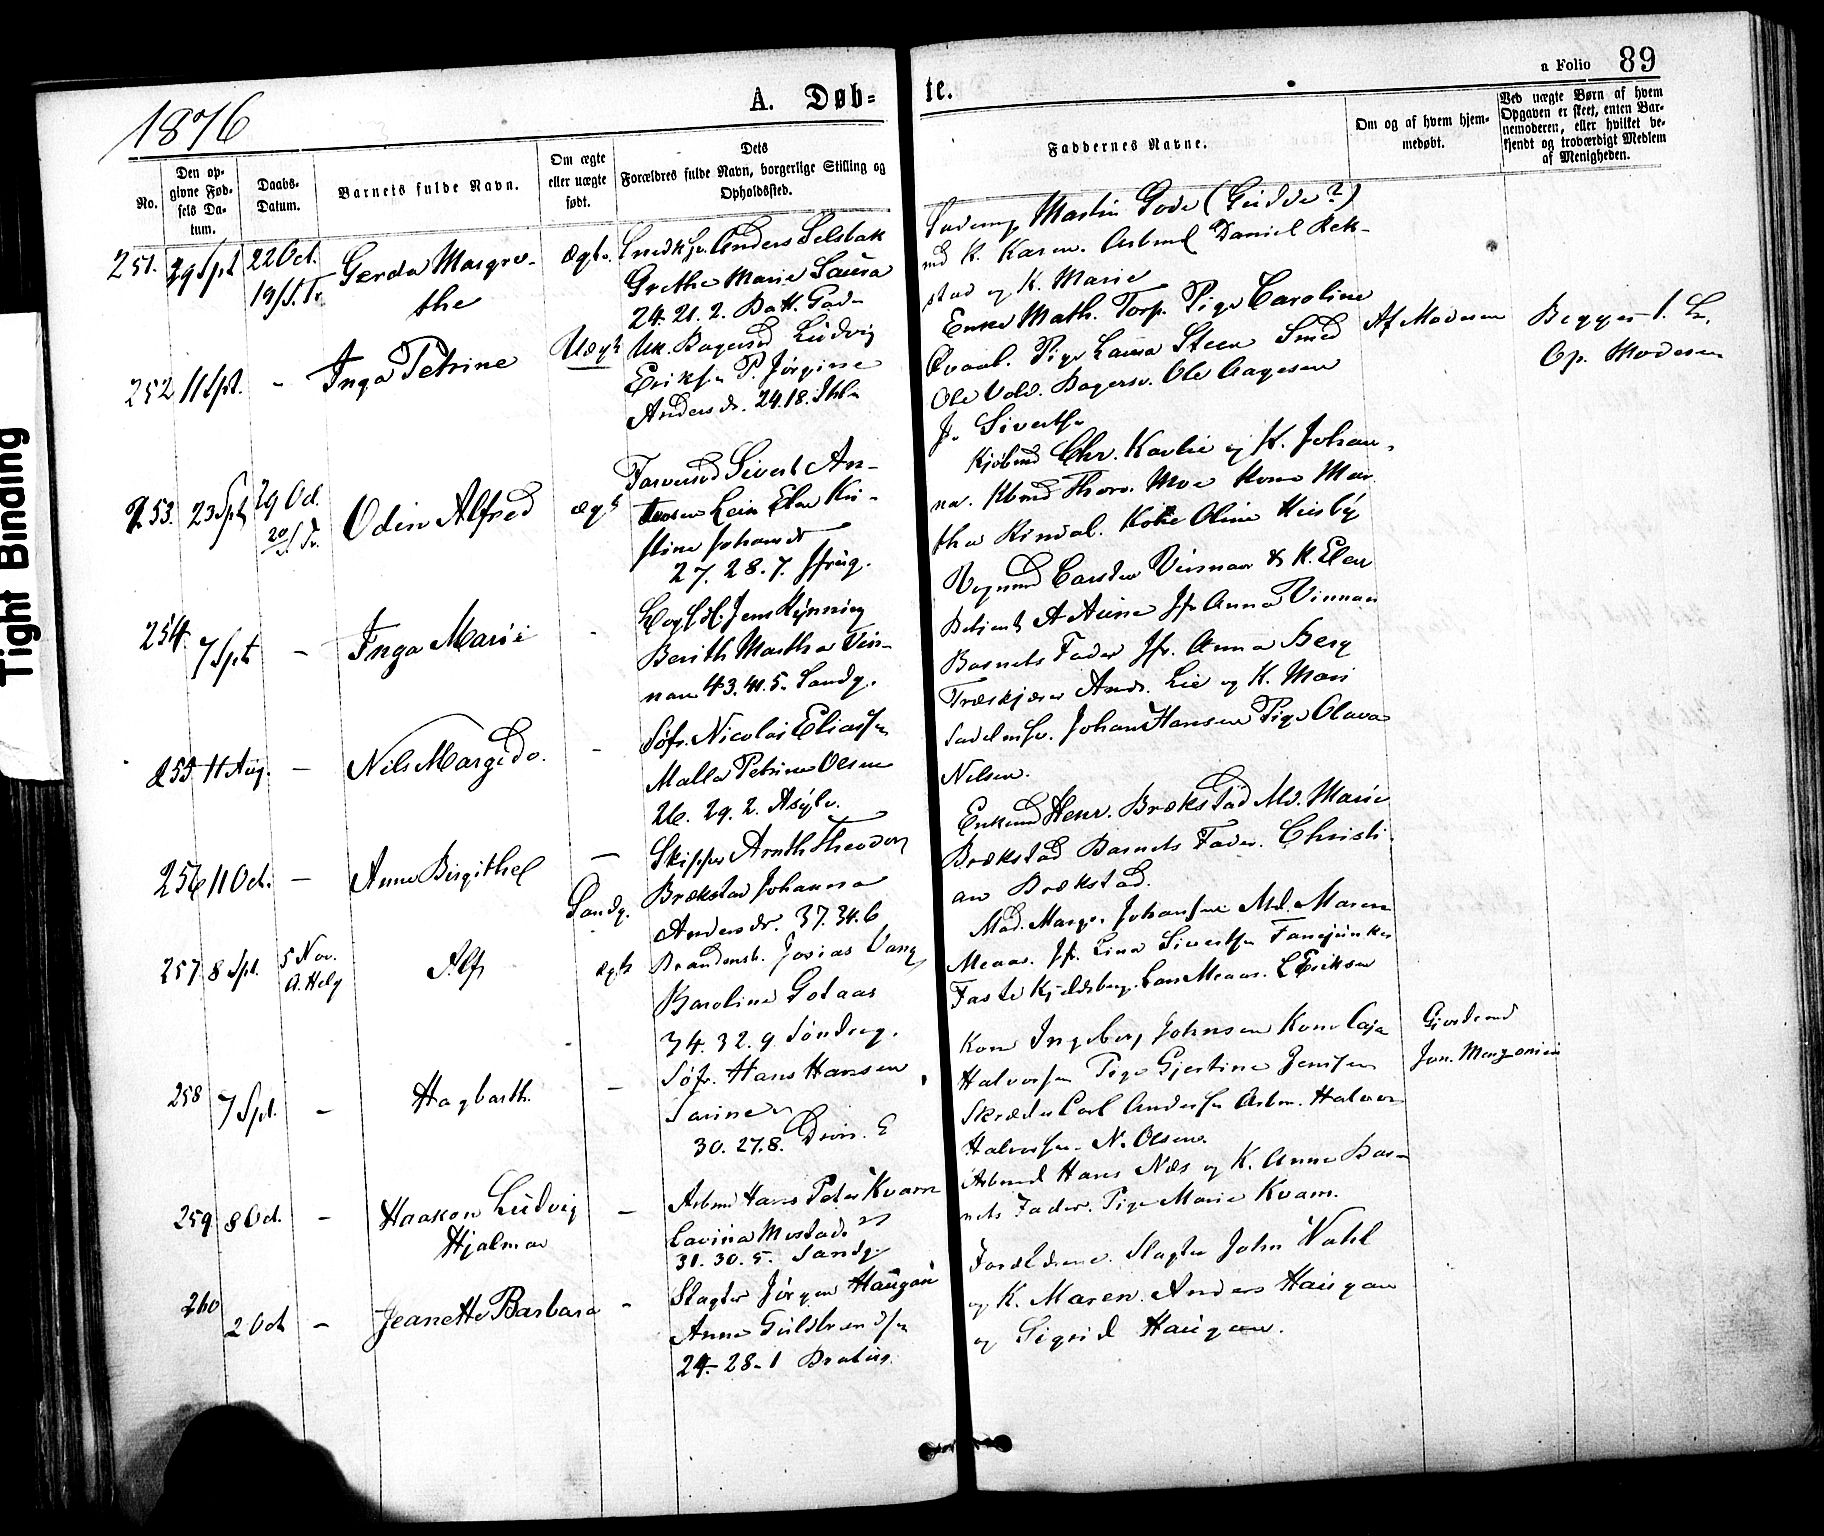 Tight Binding
1876
A. Døb-
te.
a Folio 89
No.
Den op-
givne Fød-
sels Da-
tum.
Daabs-
Datum.
Barnets fulde Navn.
Om ægte
eller uægte
født.
Dets
Forældres fulde Navn, borgerlige Stilling og
Opholdssted.
Faddernes Navne.
Om og af hvem hjem-
medøbt.
Ved uægte Børn af hvem
Opgaven er skeet, enten Bar-
nemoderen, eller hvilket be-
kjendt og troværdigt Medlem
af Menigheden.
251. 29 Spt 22 Oct. Gerda Margre- Ægte. Snedksv. Anders Selsbak
19/S. Tr. the Grethe Marie Saura
24. 21. 2. Bakk Gade
Martin Gode (Gudde?)
K. Karen. Arbmd Daniel Rek-
stad og K. Marie
252 11 Spt. - Inga Petrine Uægte Uk. Bagersv Ludvig
Eriksen P. Jørgine
Andersdr. 24. 18. Ihl-
Enke Math. Torp. Pige Caroline
Qvaal. Pige Laura Steen Smed
Ole Vold. Bagersv. Ole Aagesen
J. Sivertsen
Af Moderen
Begges 1. L.
Op. Moderen
253. 23 Spt 29 Oct. Odin Alfred ægte Farversd Sivert An-
20/S. Tr. Lein Elen Kri-
stine Johansdr
27. 28. 7.
Kjøbmd Chr. Kavlie og K. Johan-
na. Kbmd Thorv. Moe Kone Mar
tha Rindal. Kokke Oline Heisby
254 7 Spt - Inga Marie - Jens Rynning
Berith Martha Vin-
nan 43. 41. 5. Sandg.
Vognmd Carsten Vinnan & K. Elen
Betjent A Aune Jfr Anna Vinnan
Barnets Fader Jfr. Anna Berg
255 11 Aug. - Nils Margido. - Søfr. Nicolai Eliassen
Malla Petrine Olsen
26. 29. 2. Asylv.
Træskjærer Andr. Lie og K. Mari
Sadelmsv. Johan Hansen Pige Olava
Nilsen.
256 11 Oct. - Anne Birgithe - Skipper Arnth Theodor
Sandg. Brækstad Johanna
Andersdr. 37. 34. 6
Enkemd Henr. Brækstad Md. Marie
Brækstad Barnets Fader. Christi-
an Brækstad.
257 8 Spt. 5 Nov. Alf ægte Brandknst. Josias Vang
A. Helg Karoline Gotaas
34. 32. 9. Søndreg.
Mad. Margr. Johansen Md. Maren
Meaas. Jfr. Lina Sivertsen Fanejunker
Faste Kjeldsberg. Lars Meaas. L Eriksen
258 7 Spt. - Hagbarth. - Søfr. Hans Hansen
Sarine
30. 27. 8. Divis. E
Kone Ingeborg Johnsen Kone Caja
Halvorsen Pige Gjertine Jensen
Skræder Carl Andersen Arbm. Halvor
Halvorsen. N. Olsen.
Gjordemd
259 8 Oct. - Haakon Ludvig - Arbm Hans Peter Kvam
Hjalmar Lavina Mostad
31. 30. 5. Sandg
Arbmd Hans Næs og K. Anne Bar-
nets Fader. Pige Marie Kvam.
260 2 Oct - Jeanette Barbara - Slagter Jørgen Haugan
Anne Guldbrandsen
24- 28- 1 Bratøe.
Forældrene. Slagter John Wahl
og K. Maren. Anders Haugan
og Sigrid Haugan.